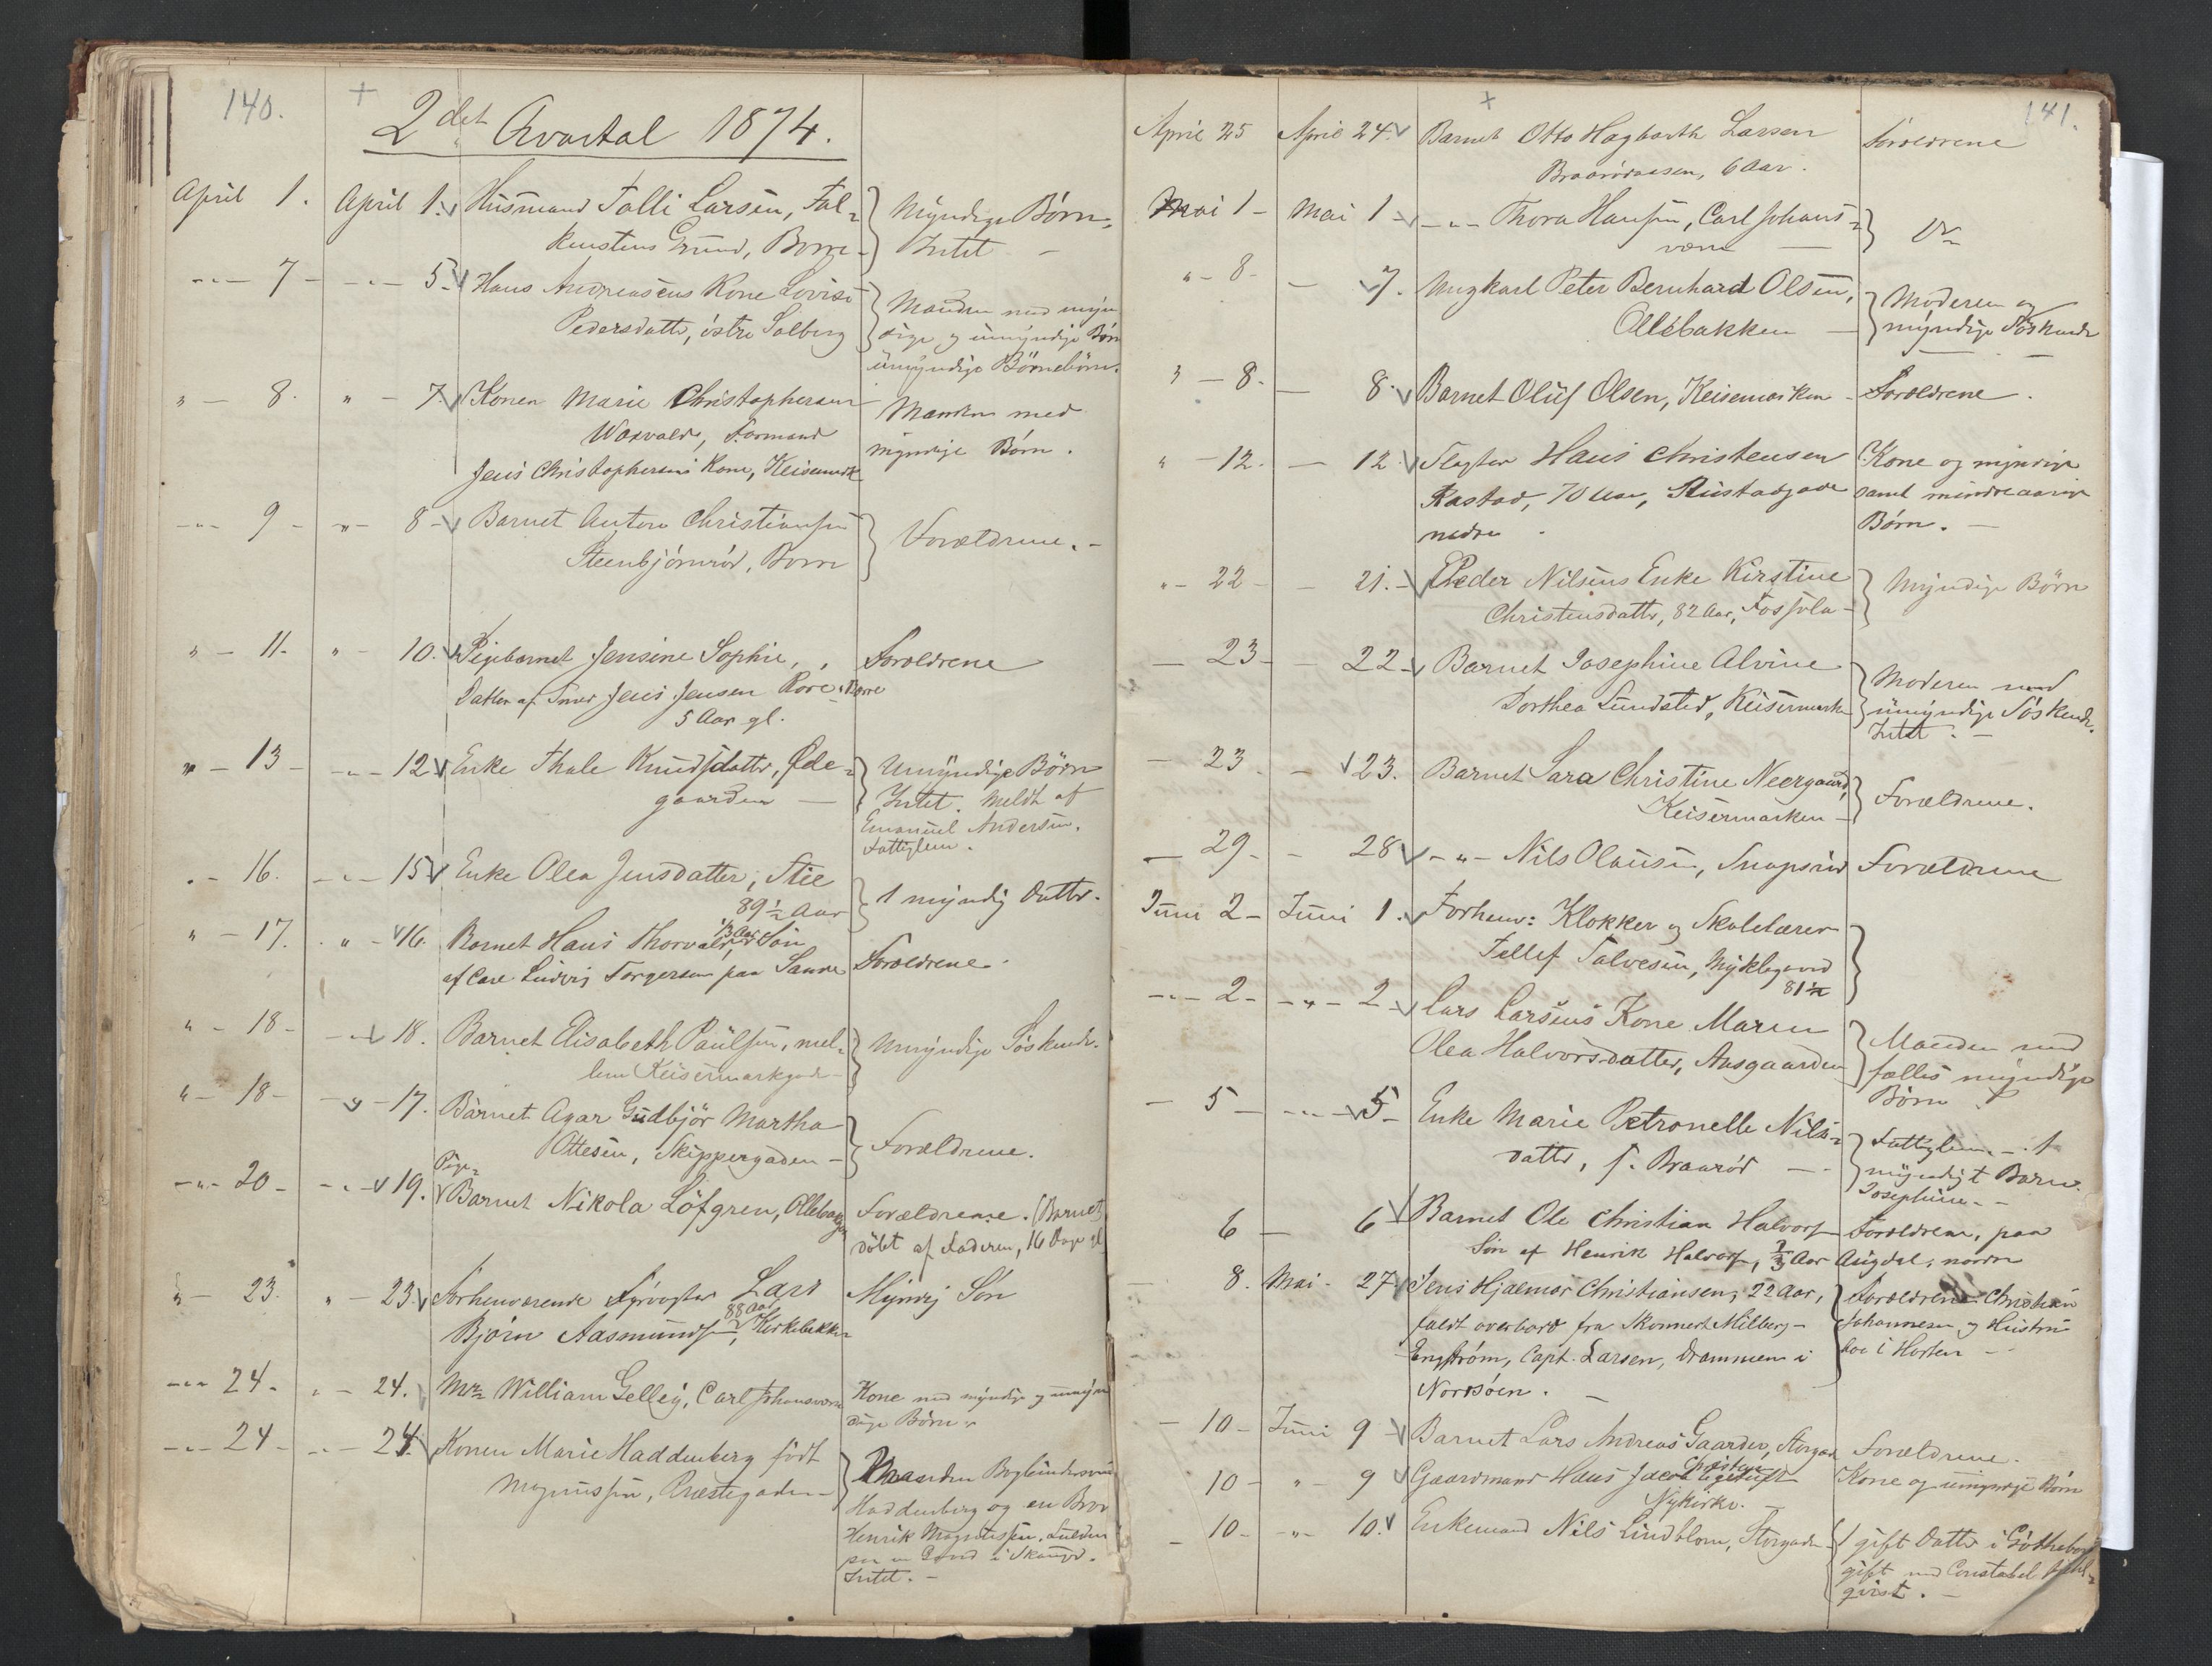 140.
2det Qvartal 1874.
April 1. April 1. Husmand Talli Larsen, Fal=
kenstens Grund, Borre
Myndige Børn,
Intet -
-"- 7 - -"- 5. Hans Andreasens Kone Lovise
Pedersdatter, østre Solberg
Manden med myn
dige og umyndige Børn
umyndige Børnebørn.
" - 8. " - 7. Konen Marie Christophersen
Woxvald, Formand
Jens Christophersens Kone, Keisemark
Manden med
myndige Børn.
-"- 9 - -"- 8 - Barnet Anton Christiansen
Steenbjörnrød, Borre
Forældrene. -
" - 11. " - 10. Pigebarnet Jensine Sophie,
Datter af Smed Jens Jensen Rore, Borre
5 Aar gl.
Forældrene
" - 13 - -"- 12 Enke Thale Knudsdatter, Øde=
gaarden -
Umyndige Børn
Intet. Meldt af
Emanuel Andersen.
Fattiglem.
" - 16. -"- 15 Enke Olea Jensdatter, Stie
89½ Aar
1 myndig Datter.
" - 17. " - 16. Barnet Hans Thorvald, 1/3 Aar Søn
af Carl Ludvig Torgersen paa Sande
Forældrene.
" - 18 - - 18. Barnet Elisabeth Paulsen, mel=
lem Keisermarkgade
Umyndige Søskende.
" - 18 - -"- 17. Barnet Agar Gudbjör Martha
Ottesen, Skippergaden -
Forældrene.
-"- 20 - -"- 19. Pige=
Barnet Nikola Löfgren, Ollebakken
Forældrene. (Barnet
døbt af Faderen, 16 Dage gl
" - 23. " - 23. Forhenværende Fyrvogter Lars
Bjørn Aasmundsen, 88 Aar, Kirkebakken
Myndig Søn
-"- 24. " - 24. Mr William Gelley, Carl Johansværn
Kone med myndige og umyn
dige Børn.
-"- 24 - -"- 24. Konen Marie Haddenberg født
Magnussen, Præstegaden -
Manden Bogbindersvend
Haddenberg og en Bror
Henrik Magnussen.
paa en Gaard i Skouger.
Intet. -
141.
April 25 April 24. Barnet Otto Hagbarth Larsen
Braarödaasen, 6 Aar.
Forældrene
Mai 1 - Mai 1 - -"- Thora Hansen, Carl Johans=
værn -
Do
" - 8 - - 7. Ungkarl Peter Bernhard Olsen,
Ollébakken -
Moderen og
myndige Søskende
" - 8. - 8. Barnet Oluf Olsen, Keisemarken -
Forældrene.
" - 12. - 12. Slagter Hans Christensen
Rastad, 70 Aar, Rustadgade
nedre.
Kone og myndige
samt mindreaarige
Børn. -
" - 22 - - 21. - Peder Nilsens Enke Kirstine
Christensdatter, 82 Aar, Fossola -
Myndige Børn
- 23 - - 22 - Barnet Josephine Alvine
Dorthea Lundsted, Keisermarken
Moderen med
umyndige Søskende.
Intet. -
- 23 - 23. Barnet Sara Christine Neergaard,
Keisermarken -
Forældrene.
- 29 - - 28 -"- Nils Olausen, Snapsrød
Forældrene
Juni 2 - Juni 1. Forhenv: Klokker og Skolelærer
Tellef Talvesen, Myklegaard
81½
-"- 2 - -"- 2 Lars Larsens Kone Maren
Olea Halvorsdatter, Aasgaarden
Manden med
fælles myndige
Børn
- 5 - -"- 5 - Enke Marie Petronelle Nils=
datter, f. Braarød -
Fattiglem. - 1
myndigt Barn.
Josephine. -
6 - 6 Barnet Ole Christian Halvors
Søn af Henrik Halvors, 2/3 Aar
Forældrene, paa
Augdal, nordre
8. Mai - 27. Jens Hjalmar Christiansen, 22 Aar,
faldt overbord fra Skonnert Milberg -
Engstrøm, Capt. Larsen, Drammen i
Nordsøen. -
Forældrene Christian
Johannesen og Hustru
boe i Horten -
- 10 - Juni 9 Barnet Lars Andreas Gaarder, Storgad
Forældrene.
10 - " - 9 Gaardmand Hans Jacob Christensen
Nykirke. -
Kone og umyndige Børn
- 10 - -"- 10. Enkemand Nils Lindblom, Storgaden
1 gift Datter i Gøtheborg
gift med Constabel
qvist. -